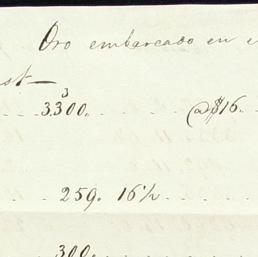 Oro embarcado en e
st—
3
3,300. @$16.
259. 16½
300.